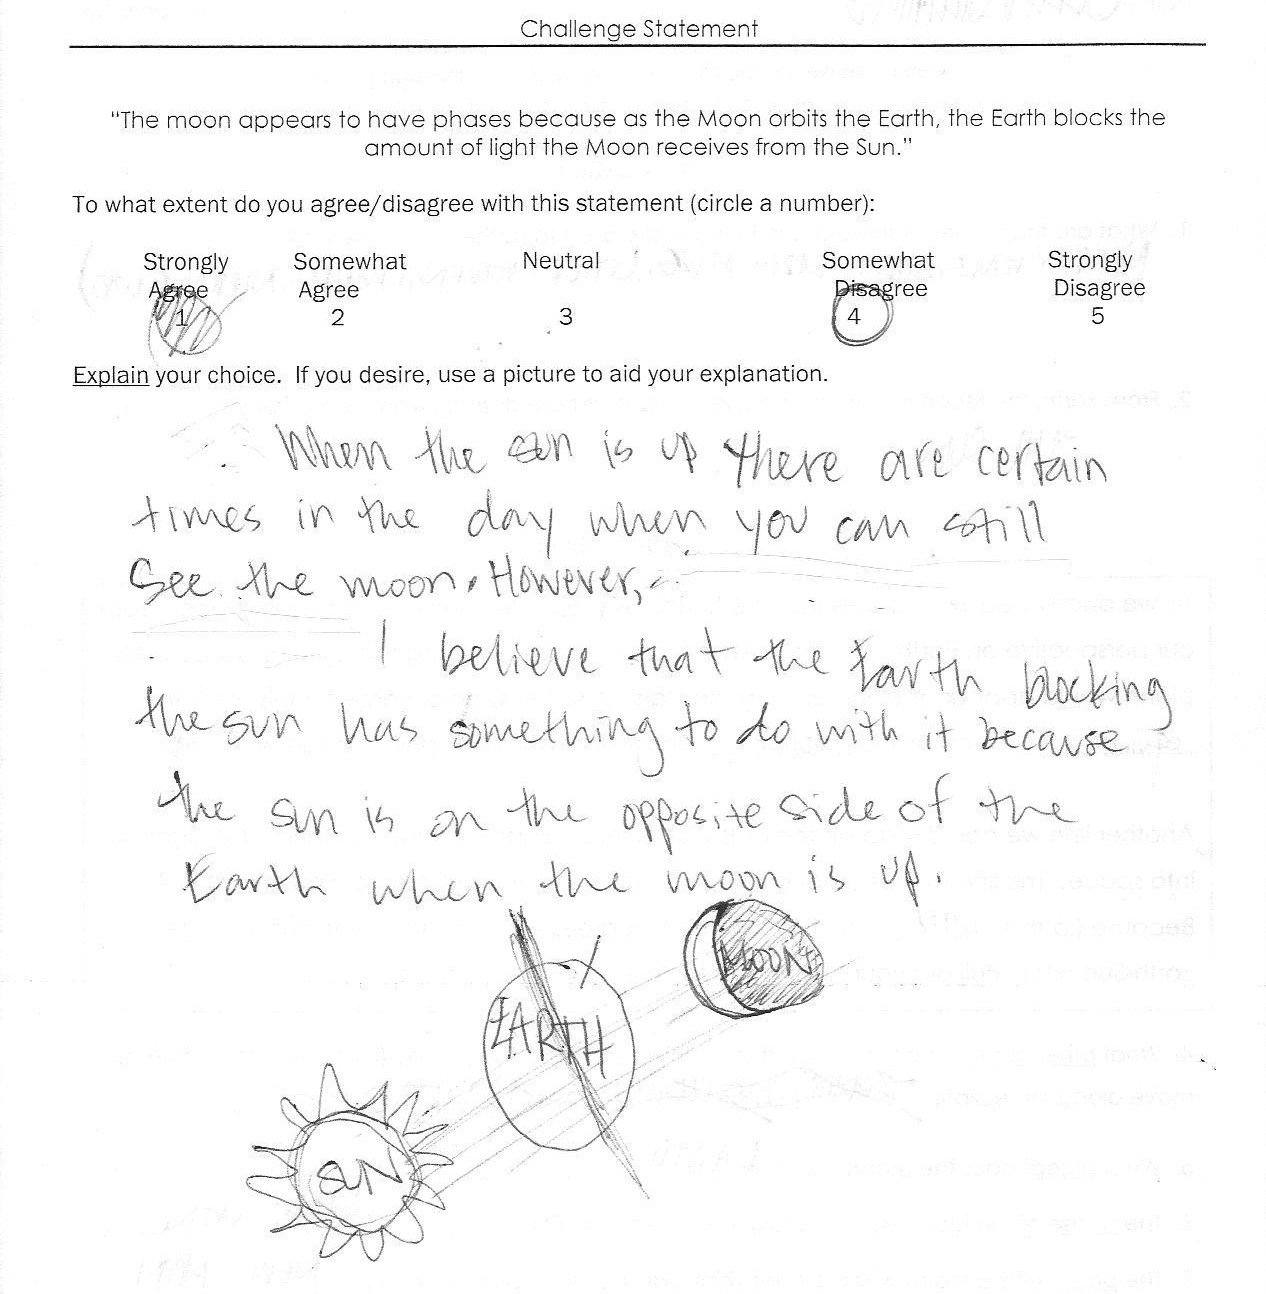 Challenge Statement
"The moon appears to have phases because as the Moon orbits the Earth, the Earth blocks the
amount of light the Moon receives from the Sun."
To what extent do you agree/disagree with this statement (circle a number):
Strongly Somewhat Neutral Somewhat Strongly
Agree Agree Disagree Disagree
1 2 3 4 5
Explain your choice. If you desire, use a picture to aid your explanation.
When the sun is up there are certain
times in the day when you can still
see the moon. However,
I believe that the Earth blocking
the sun has something to do with it because
the sun is on the opposite side of the
Earth when the moon is up.
MOON
EARTH
SUN